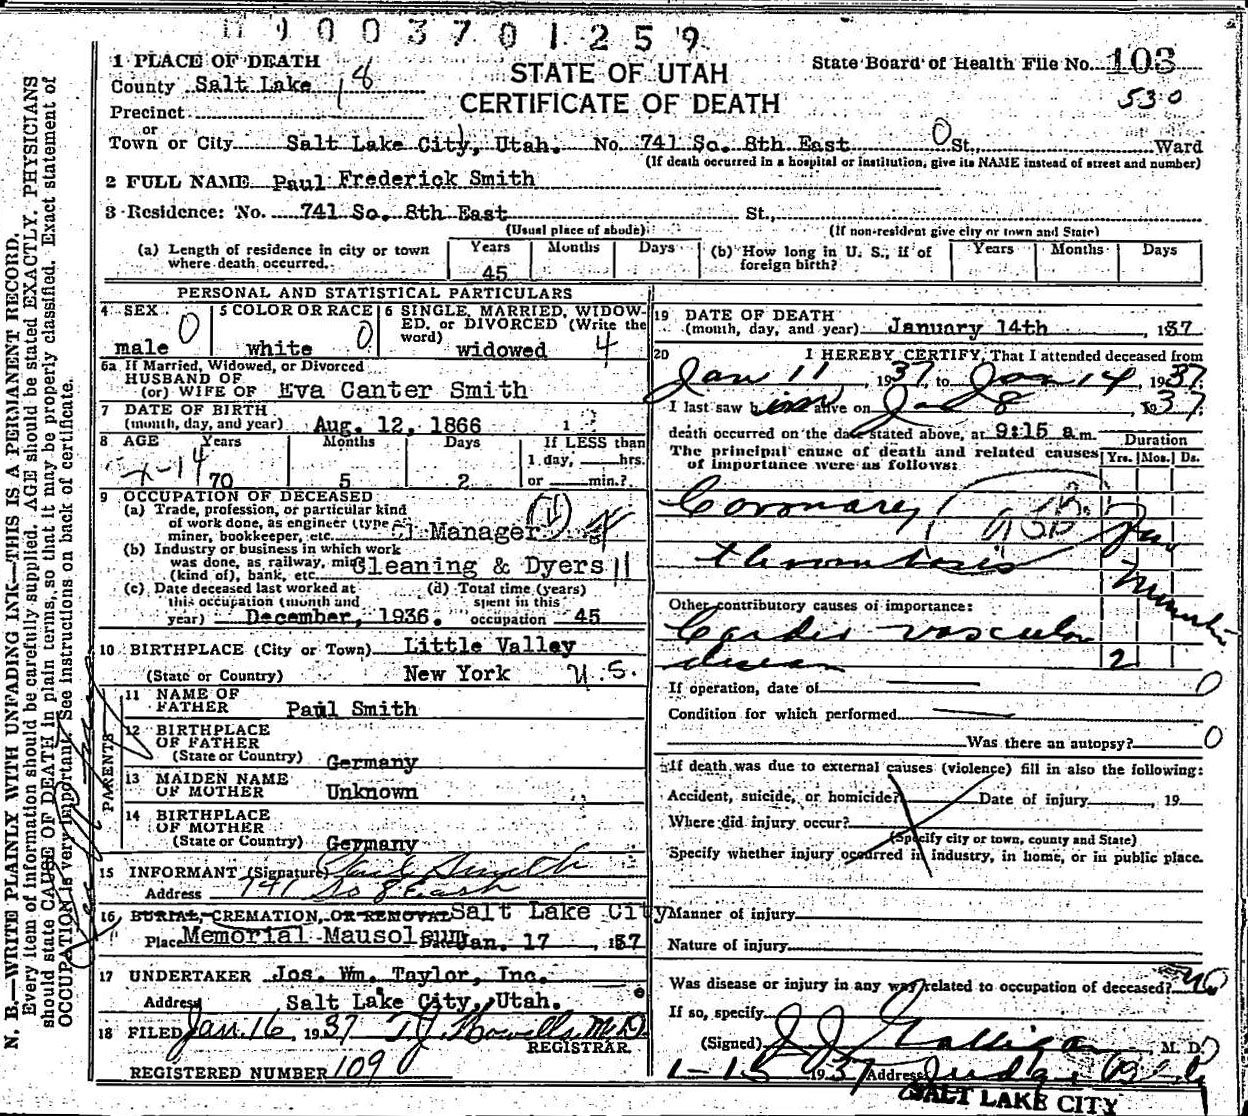 19003701259
1 PLACE OF DEATH
STATE OF UTAH
State Board of Health File No. 103
County Salt Lake 18
CERTIFICATE OF DEATH
530
Precinct
or
Town or City Salt Lake City, Utah. No. 741 So. 8th East 0 St., Ward
(If death occurred in a hospital or institution, give its NAME instead of street and number)
2 FULL NAME Paul Frederick Smith
3 Residence: No. 741 So. 8th East St.,
(Usual place of abode) (If non-resident give city or town and State)
(a) Length of residence in city or town where death occurred. Years 45 Months Days
(b) How long in U. S., if of foreign birth? Years Months Days
PERSONAL AND STATISTICAL PARTICULARS
4 SEX male 0
5 COLOR OR RACE white 0
6 SINGLE, MARRIED, WIDOWED, or DIVORCED (Write the word) widowed 4
6a If Married, Widowed, or Divorced
HUSBAND OF
(or) WIFE OF Eva Canter Smith
7 DATE OF BIRTH
(month, day, and year) Aug. 12, 1866 1
8 AGE Years Months Days If LESS than
1 day, hrs.
70 5 2 or min.?
9 OCCUPATION OF DECEASED
(a) Trade, profession, or particular kind
of work done, as engineer (type
miner, bookkeeper, etc. Manager
(b) Industry or business in which work
was done, as railway, min
(kind of), bank, etc. Cleaning & Dyers 11
(c) Date deceased last worked at
this occupation (month and
year) December, 1936.
(d) Total time (years)
spent in this
occupation 45
10 BIRTHPLACE (City or Town) Little Valley
(State or Country) New York U.S.
PARENTS
11 NAME OF
FATHER Paul Smith
12 BIRTHPLACE
OF FATHER
(State or Country) Germany
13 MAIDEN NAME
OF MOTHER Unknown
14 BIRTHPLACE
OF MOTHER
(State or Country) Germany
15 INFORMANT (Signature) Paul Smith
Address 741 So 8 East
16 BURIAL, CREMATION, OR REMOVAL Salt Lake City
Place Memorial Mausoleum Date Jan. 17, 1937
17 UNDERTAKER Jos. Wm. Taylor, Inc.
Address Salt Lake City, Utah.
18 FILED Jan. 16, 1937 M.D.
REGISTRAR
REGISTERED NUMBER 109
19 DATE OF DEATH
(month, day, and year) January 14th, 1937
20 I HEREBY CERTIFY, That I attended deceased from
Jan 11, 1937, to Jan 14, 1937.
I last saw him alive on Jan 8, 1937
death occurred on the date stated above, at 9:15 a.m.
Duration
The principal cause of death and related causes
of importance were as follows:
Yrs. Mos. Ds.
Coronary
thrombosis
Few
minutes
Other contributory causes of importance:
Cardio vascular
disease 2
If operation, date of 0
Condition for which performed
Was there an autopsy? 0
If death was due to external causes (violence) fill in also the following:
Accident, suicide, or homicide? Date of injury, 19
Where did injury occur?
(Specify city or town, county and State)
Specify whether injury occurred in industry, in home, or in public place.
Manner of injury
Nature of injury
Was disease or injury in any way related to occupation of deceased? no
If so, specify
(Signed) J. J. Galligan, M. D.
1-15 1937 Address Judge Bldg
SALT LAKE CITY
N. B.—WRITE PLAINLY WITH UNFADING INK—THIS IS A PERMANENT RECORD.
Every item of information should be carefully supplied. AGE should be stated EXACTLY. PHYSICIANS
should state CAUSE OF DEATH in plain terms, so that it may be properly classified. Exact statement of
OCCUPATION is very important. See instructions on back of certificate.